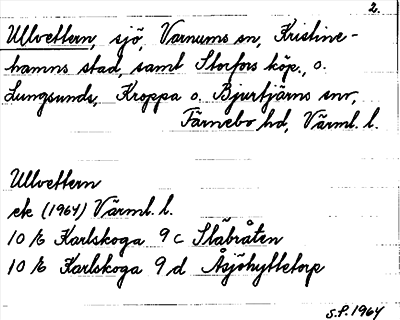 2.
Ullvettern, sjö, Varnums sn, Kristine-
hamns stad, samt Storfors köp., o.
Lungsunds, Kroppa o. Bjurtjärns snr,
Färnebo hd, Värml. l.
Ullvettern
ek (1964) Värml. l.
10 E Karlskoga 9 c Släbråten
10 E Karlskoga 9 d Åsjöhyttetorp
S.P. 1964